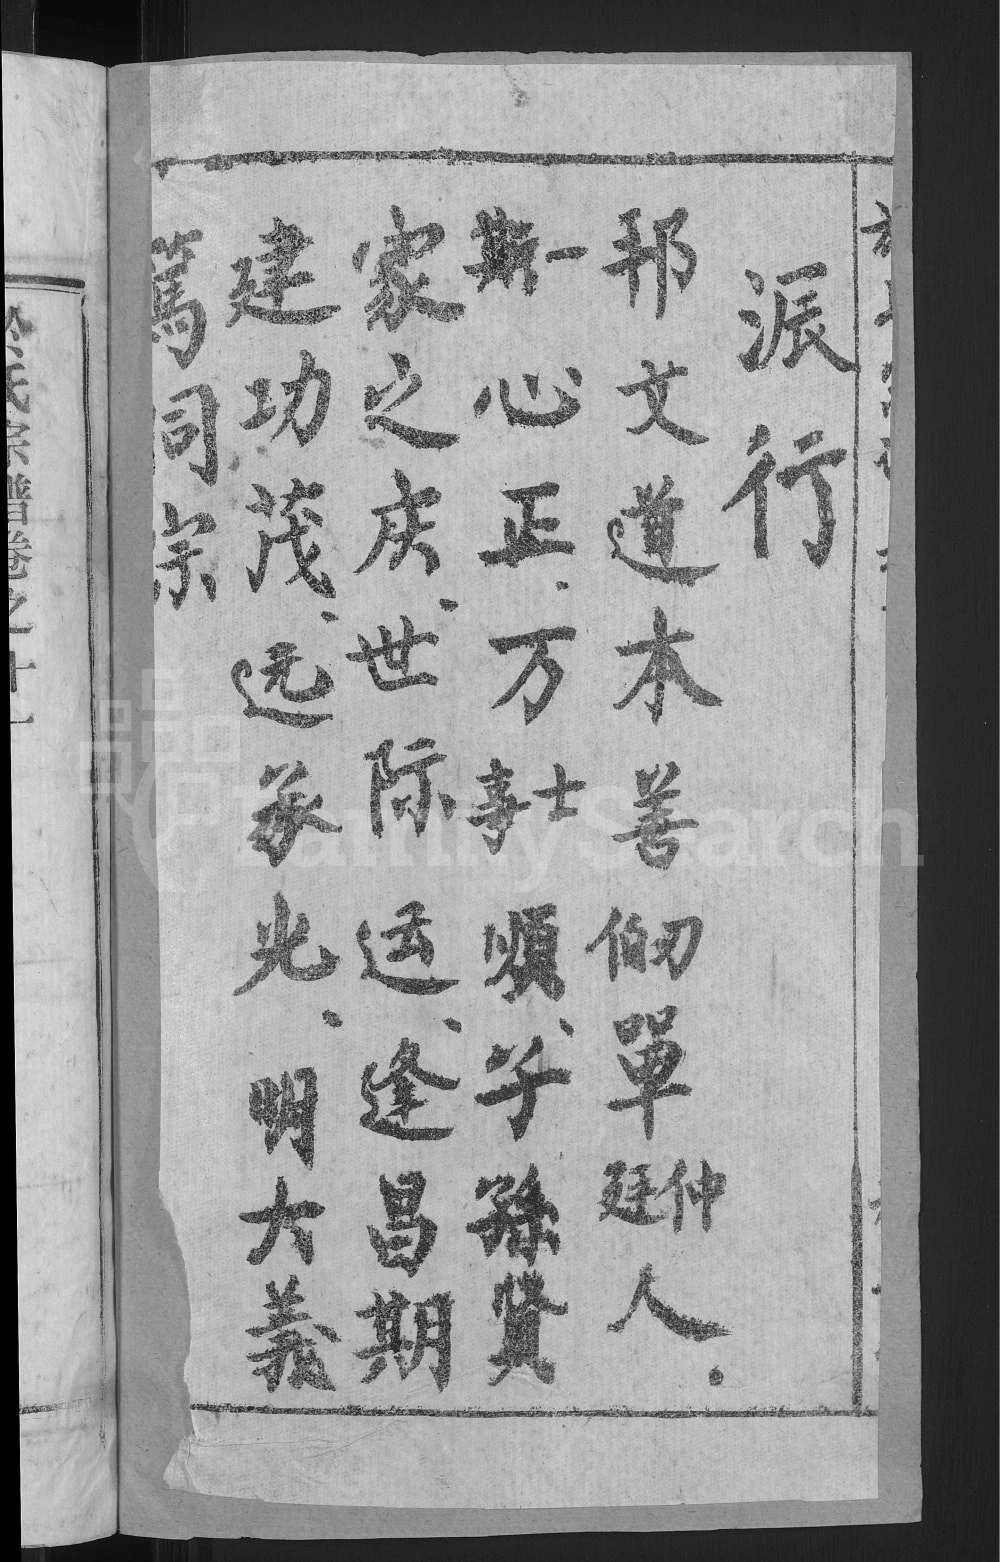 派行
邦文道本善伯刃單廷仲人．
斯一心正．万事士順、子孫賢
家之庆、世际运、逢昌期
建功茂、远家光、明大義
篤同宗
氏宗譜卷之十
FamilySearch